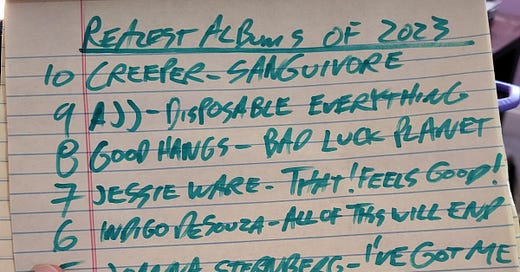 REALEST ALBUMS OF 2023
10 CREEPER - SANGUIVORE
9 AJJ - DISPOSABLE EVERYTHING
8 GOOD HANGS - BAD LUCK PLANET
7 JESSIE WARE - THAT! FEELS GOOD!
6 INDIGO DESOUZA - ALL OF THIS WILL END
5 JOANNA STERNBERG - I'VE GOT ME